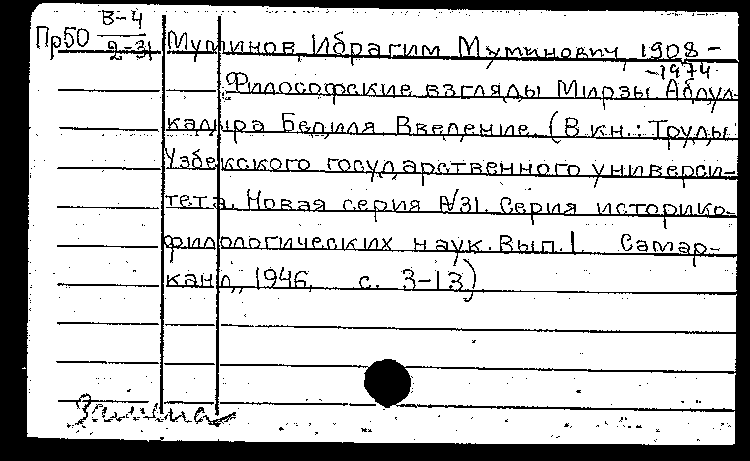 Пр50 В-4
2-31
Муминов, Ибрагим Муминович, 1908 -
-1974
Философские взгляды Мирзы Абдул-
кадира Бедиля. Введение. (В кн.: Труды
Узбекского государственного универси-
тета. Новая серия №31. Серия историко-
филологических наук. Вып. 1. Самар-
канд, 1946, с. 3-13).
Замена